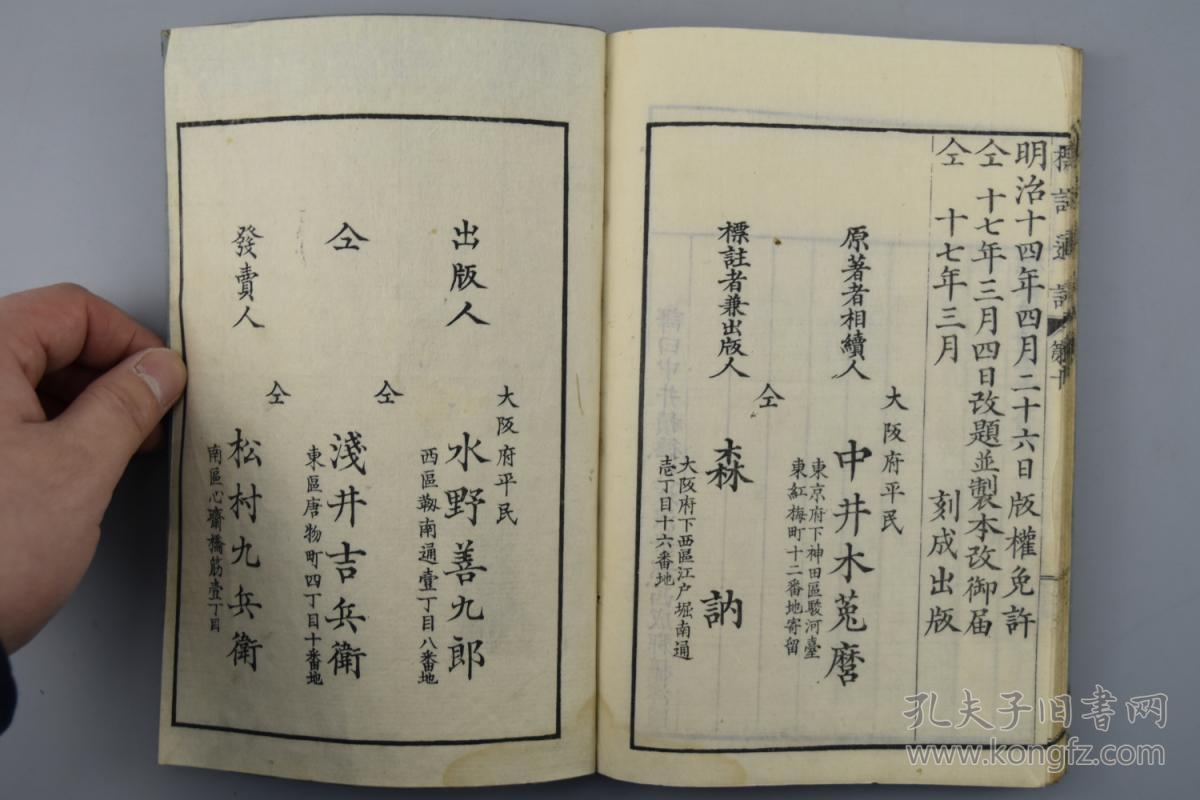 標註通語 第十
明治十四年四月二十六日版權免許
仝 十七年三月四日改題並製本改御届
仝 十七年三月 刻成出版
大阪府平民
原著者相續人 中井木菟麿
東京府下神田區駿河臺
東紅梅町十二番地寄留
仝
標註者兼出版人 森 訥
大阪府下西區江戸堀南通
壱丁目十六番地
大阪府平民
出版人 水野善九郎
西區靱南通壹丁目八番地
仝
仝 淺井吉兵衛
東區唐物町四丁目十番地
仝
發賣人 松村九兵衛
南區心齋橋筋壹丁目
孔夫子旧书网
www.kongfz.com